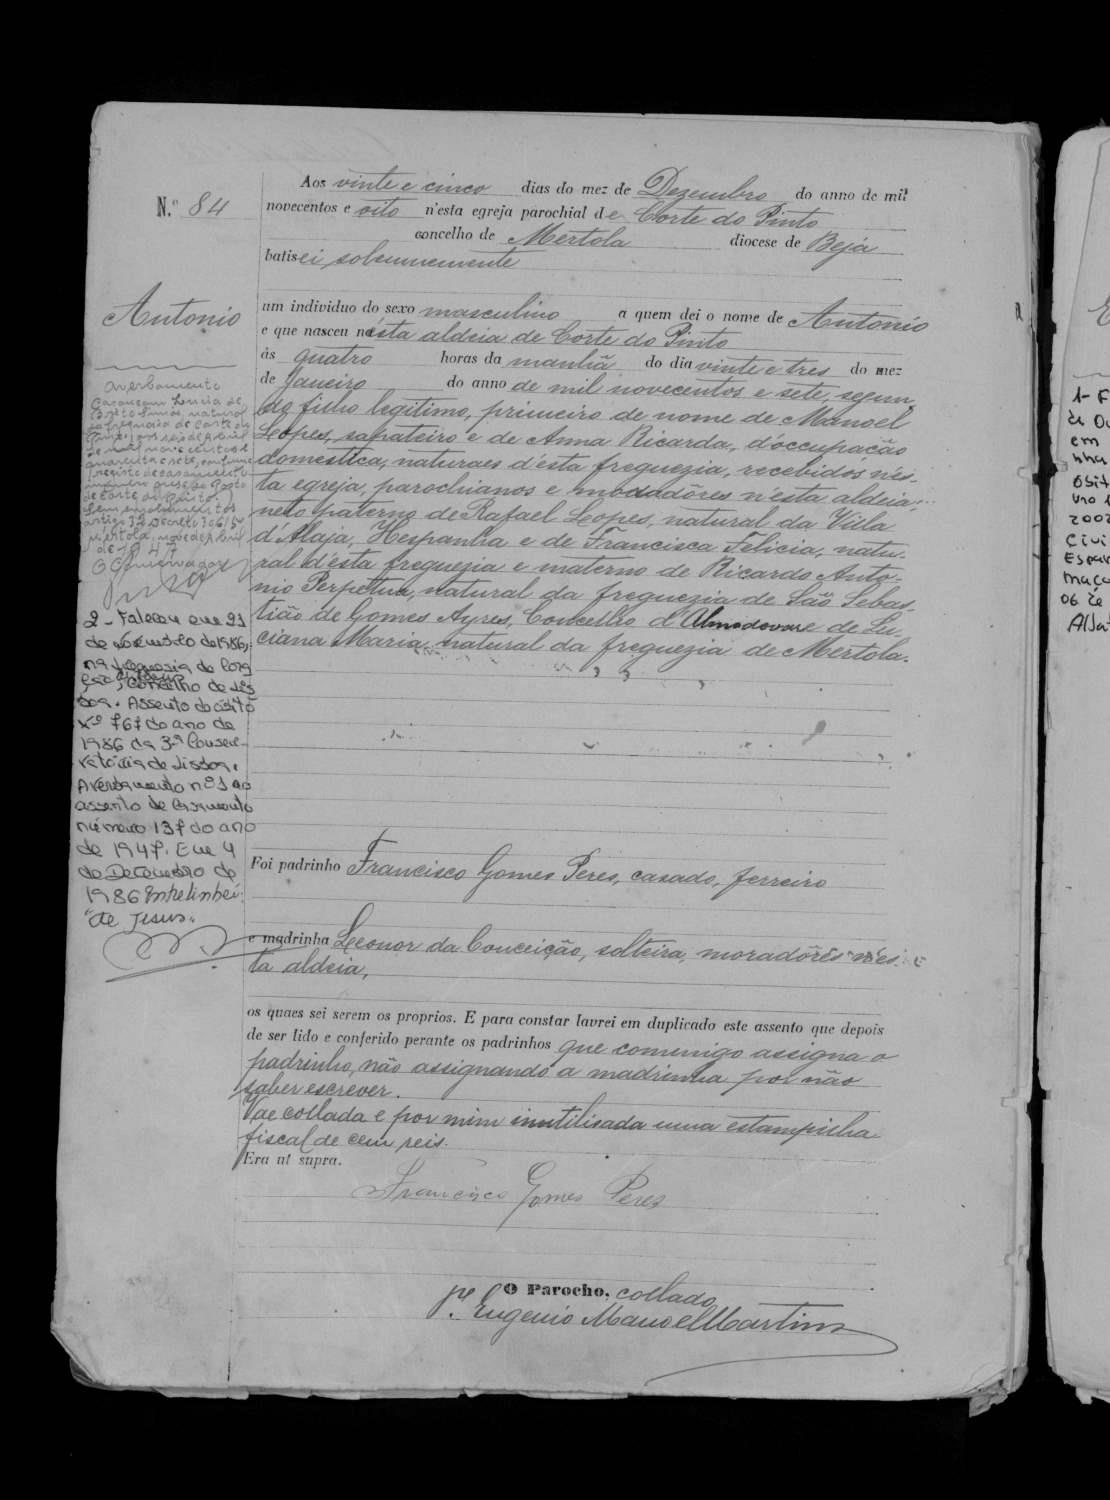 N.º 84
Aos vinte e cinco dias do mez de Dezembro do anno de mil
novecentos e oito n'esta egreja parochial de Corte do Pinto
concelho de Mertola diocese de Beja
batisei solemnemente
Antonio
um individuo do sexo masculino a quem dei o nome de Antonio
e que nasceu nésta aldeia de Corte do Pinto
ás quatro horas da manhã do dia vinte e tres do mez
de Janeiro do anno de mil novecentos e sete, segun,
do filho legitimo, primeiro de nome de Manoel
Lopes, sapateiro e de Anna Ricarda, d'occupação
domestica, naturaes d'ésta freguezia, recebidos n'és-
ta egreja, parochianos e moradôres n'ésta aldeia;
neto paterno de Rafael Lopes, natural da Villa
d'Alaja, Hespanha e de Francisca Felicia, natu-
ral d'ésta freguezia e materno de Ricardo Anto-
nio Perpetua, natural da freguezia de São Sebas,
tião de Gomes Ayres, Concelho d'Almodovar e de Lu-
ciana Maria, natural da freguezia de Mertola.
Averbamento
Casou com
Santos, natural
da freguesia de Corte do
Pinto, aos seis de Abril
de mil novecentos e
quarenta e sete, conforme
registo de casamento
número do Posto
de Corte do Pinto.
Sem emolumentos
artigo Decreto
Mertola, nove de Abril
de 1947
O Conservador
2 - Faleceu em 21
de novembro de 1986,
na freguesia do Cora
ção de Jesus, Concelho de Lis
boa. Assento de óbito
nº 767 do ano de
1986 da 3ª Conser-
vatória de Lisboa.
Averbamento nº 1 ao
assento de casamento
número 137 do ano
de 1947. Em 4
de Dezembro de
1986 Entrelinhei:
"de Jesus".
Foi padrinho Francisco Gomes Peres, casado, ferreiro
e madrinha Leonor da Conceição, solteira, moradôres n'és-
ta aldeia,
os quaes sei serem os proprios. E para constar lavrei em duplicado este assento que depois
de ser lido e conferido perante os padrinhos que comemigo assigna o
padrinho, não assignando a madrinha por não
saber escrever.
Vae collada e por mim inutilisada uma estampilha
fiscal de cem reis.
Era ut supra.
Francisco Gomes Peres
O Parocho, collado
Pe. Eugenio Manoel Martins
1- F
de Ou
em
nha
óbit
uno
2002
Civi
Espar
maço
06 de
A Aju